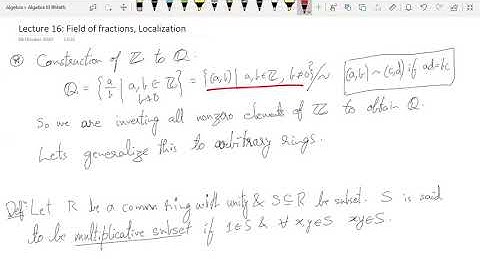 Algebra > Algebra III BMath
Lecture 16: Field of fractions, Localization
Construction of ℤ to ℚ.
ℚ = { a/b | a, b ∈ ℤ, b≠0 } = { (a,b) | a, b ∈ ℤ, b≠0 }/~ (a,b) ~ (c,d) if ad=bc
So we are inverting all nonzero elements of ℤ to obtain ℚ.
Lets generalize this to arbitrary rings.
Def: Let R be a comm ring with unity & S⊆R be subset. S is said
to be multiplicative subset if 1∈S & ∀ x,y∈S xy∈S.